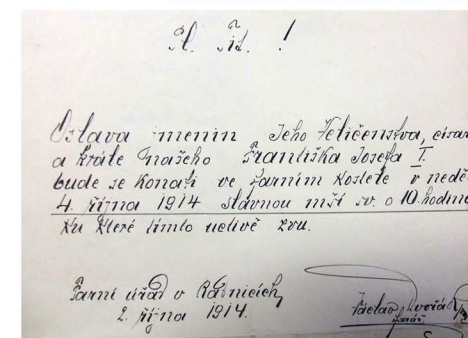 Sl. Tit. !
Oslava jmenin Jeho Veličenstva, císař
a krále našeho Františka Josefa I.
bude se konati ve farním kostele v neděl
4. října 1914 slavnou mší sv. o 10. hodině
ku které tímto uctivě zvu.
Farní úřad v Radnicích,
2. října 1914.
Václav Dvořák
farář.